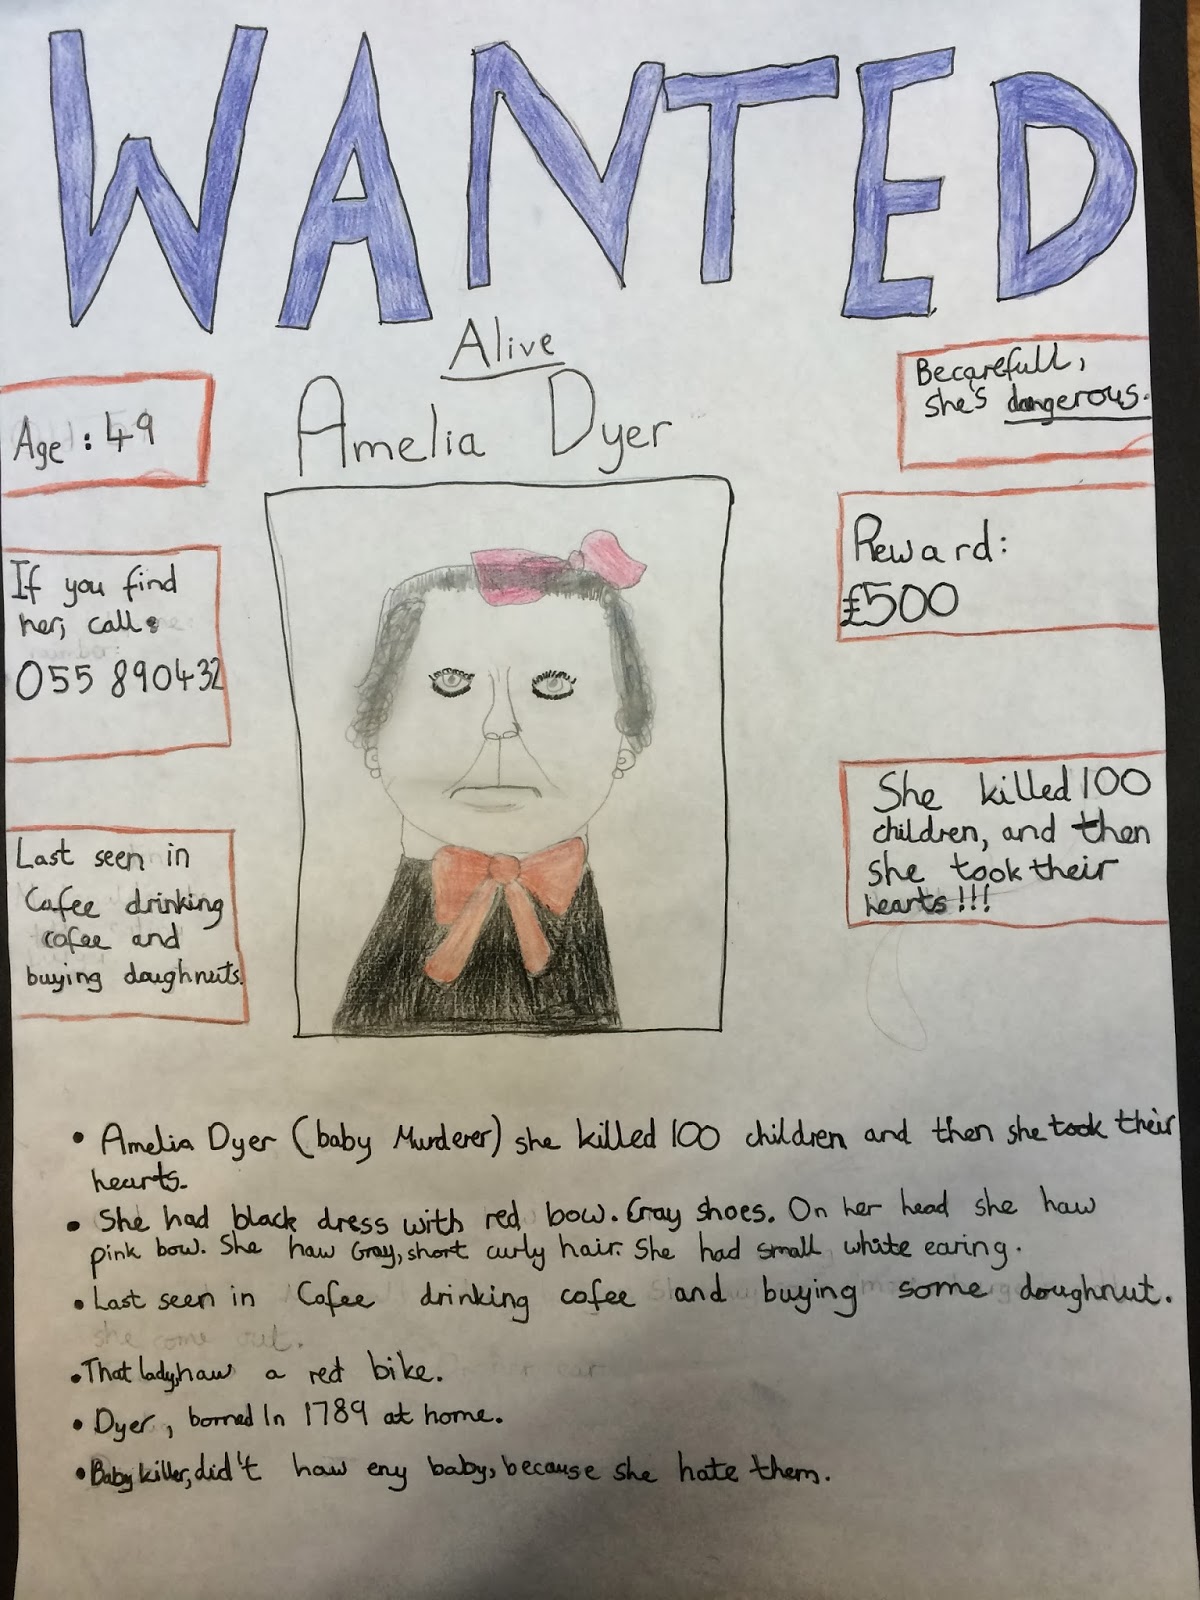 WANTED
Alive
Amelia Dyer
Age : 49
If you find
her, call:
055 890432
Last seen in
Cafee drinking
cofee and
buying doughnuts.
Becarefull,
she's dangerous.
Reward:
£500
She killed 100
children, and then
she took their
hearts!!!
• Amelia Dyer (baby Murderer) she killed 100 children and then she took their
hearts.
• She had black dress with red bow. Gray shoes. On her head she haw
pink bow. She haw Gray, short curly hair. She had small white earing.
• Last seen in Cafee drinking cofee and buying some doughnut.
she come out.
• That lady, haw a red bike.
• Dyer, borned In 1789 at home.
• Baby killer, did't haw eny baby, because she hate them.